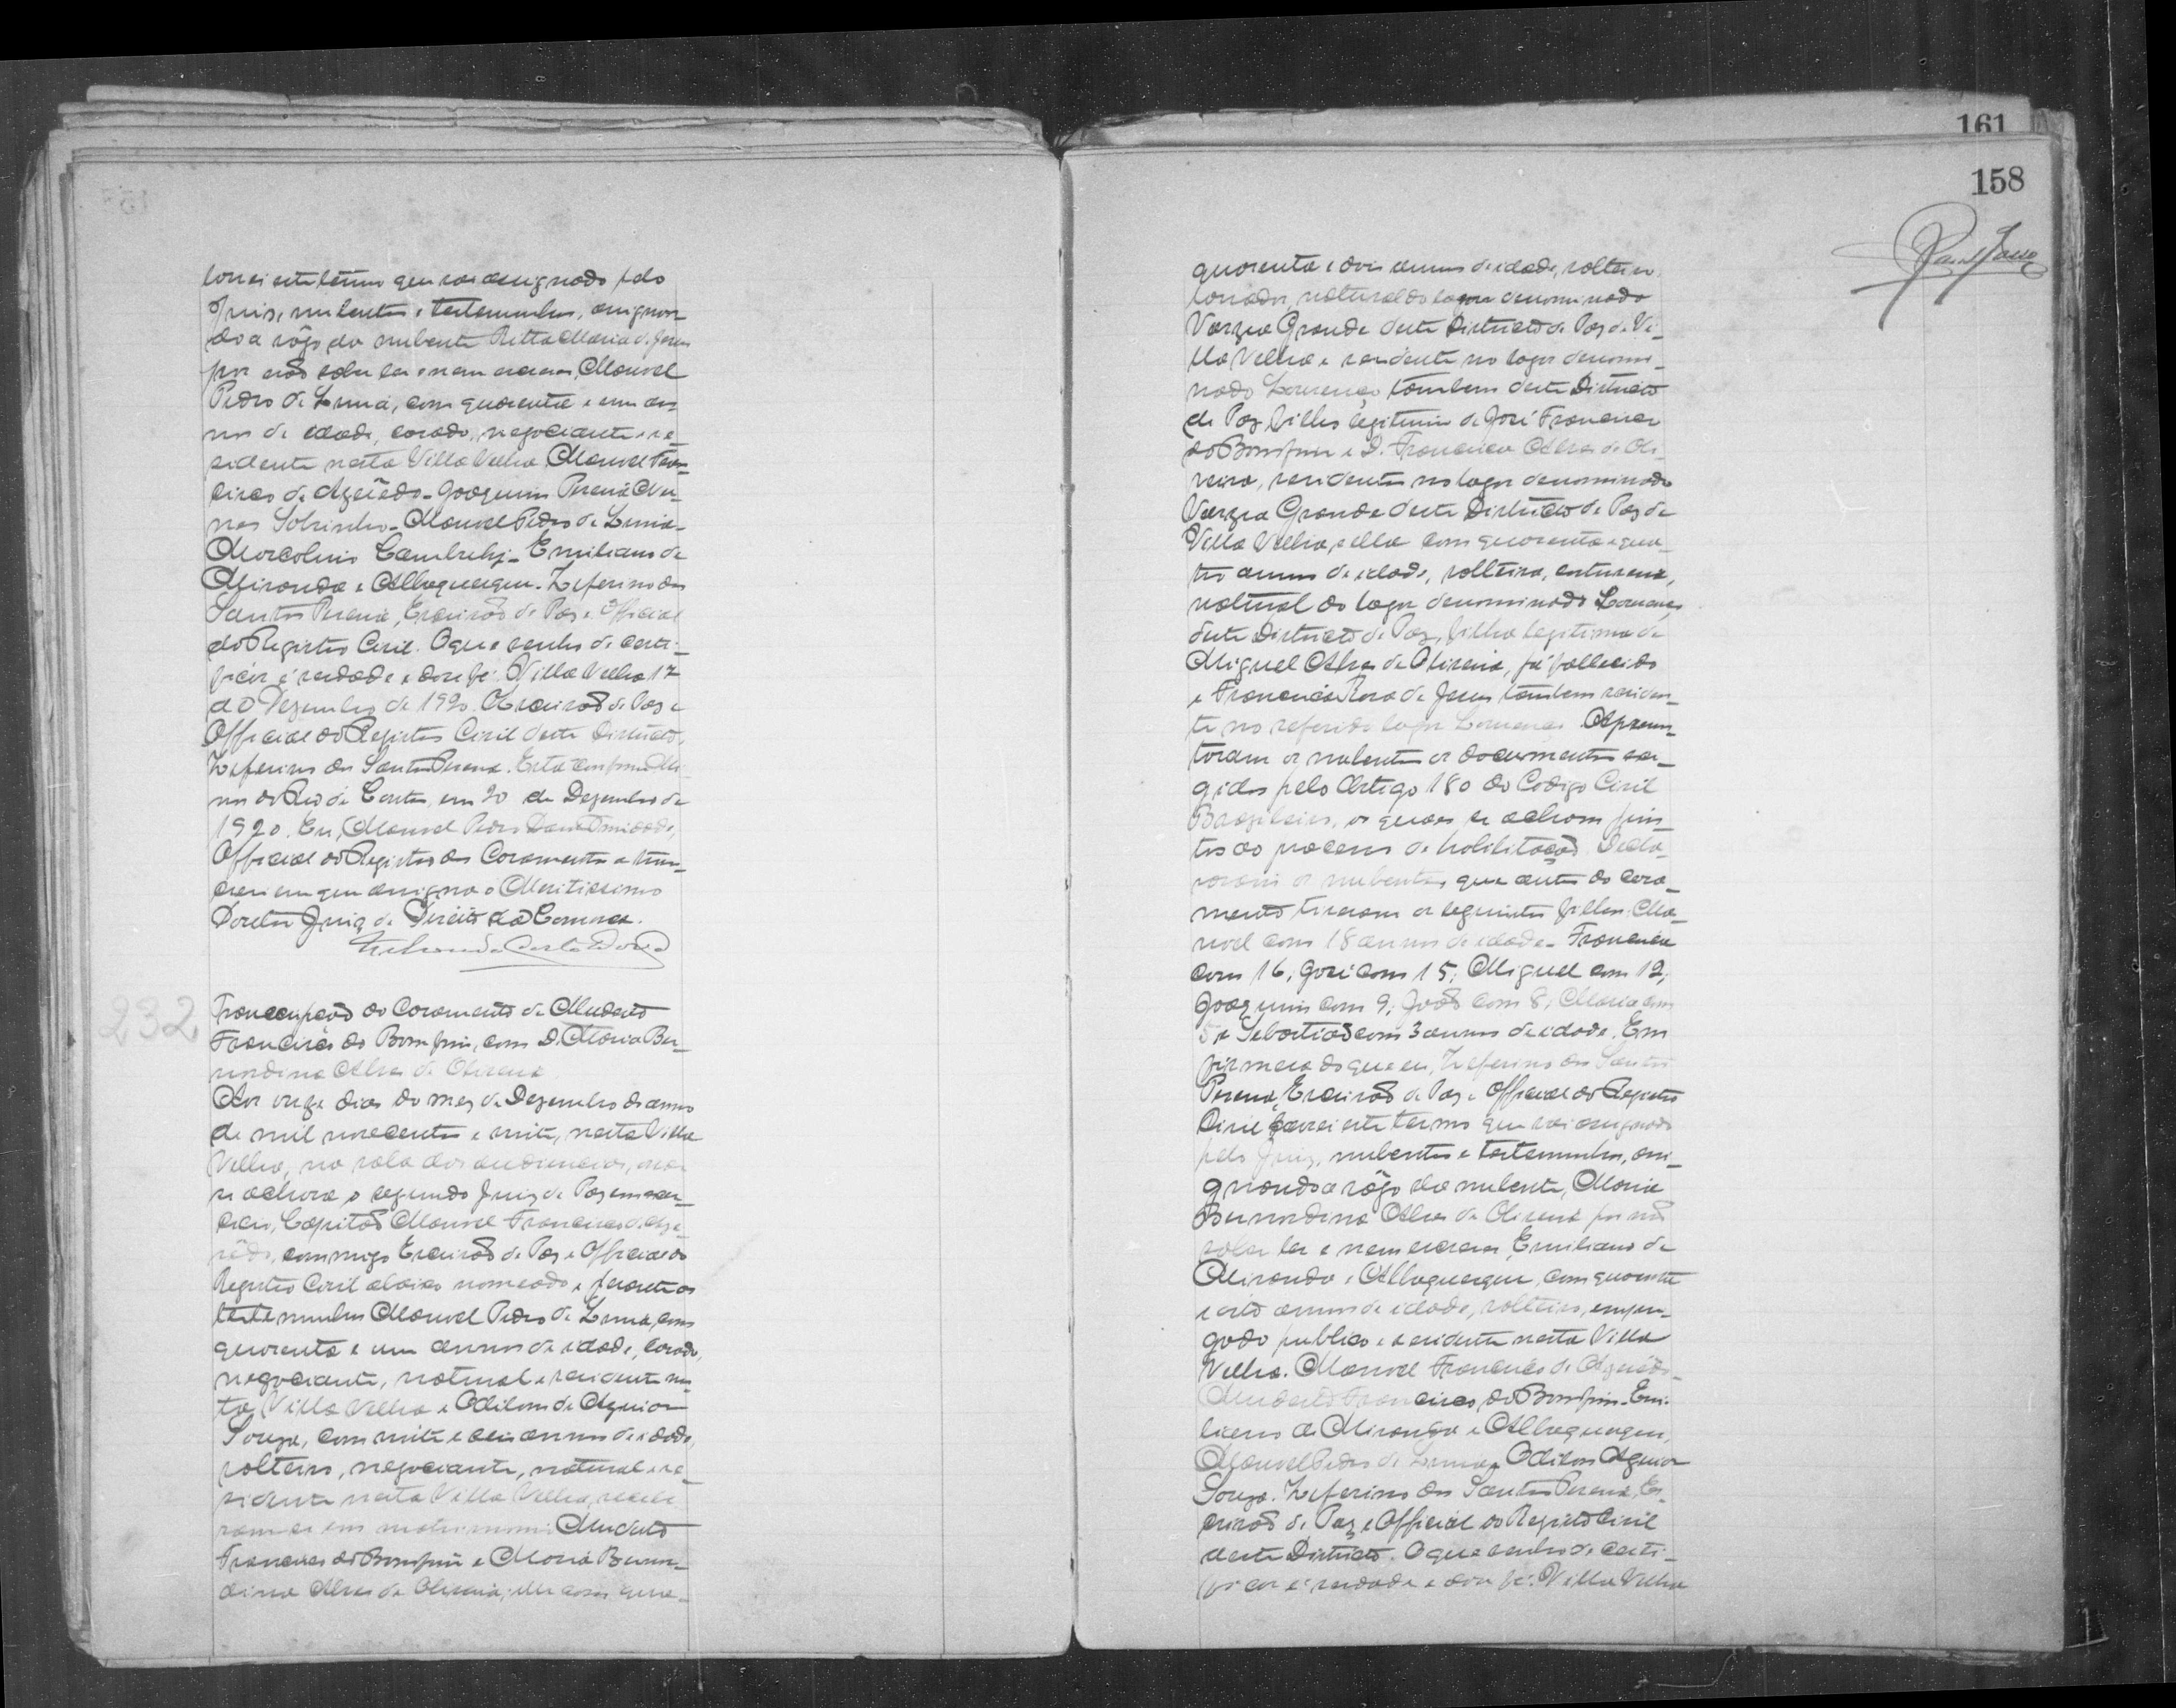 lavrei este têrmo que vae assignado pelo
Juiz, nubentes e testemunhas, assignan-
do a rôgo da nubente Ritta Maria de Jesus
por não saber ler e nem escrever, Manoel
Pedro de Lima, com quarenta e um an-
nos de edade, casado, negociante e re-
sidente nesta Villa Velha. Manoel Fran-
cisco de Azevêdo - Joaquim Pereira
Sobrinho - Manoel Pedro de Lima -
Marcolino - Emiliano de
Miranda e Albuquerque. Zeferino dos
Santos Pereira, Escrivão de Paz e Official
do Registro Civil. O que venho de certi-
ficar é verdade e dou fé. Villa Velha 17
de Dezembro de 1920. O Escrivão de Paz e
Official do Registro Civil deste Districto,
Zeferino dos Santos Pereira. Está conforme. Mi-
nas do Rio de Contas, em 20 de Dezembro de
1920. Eu, Manoel Pedro
Official do Registro dos Casamentos a trans-
crevi em que assigna o Meritissimo
Doutor Juiz de Direito da Comarca.
232
Transcripção do Casamento de Modesto
Francisco do Bomfim, com D. Maria Ber-
nardina Alves de Oliveira.
Aos onze dias do mez de Dezembro do anno
de mil novecentos e vinte, nesta Villa
Velha, na sala das audiencias, onde
se achava o segundo Juiz de Paz em exer-
cicio, Capitão Manoel Francisco de Aze-
vêdo, commigo Escrivão de Paz e Official do
Registro Civil abaixo nomeado e perante as
testemunhas Manoel Pedro de Lima, com
quarenta e um annos de edade, casado,
negociante, natural e residente nes-
ta Villa Velha e Odilon de Aguiar
Souza, com vinte e seis annos de edade,
solteiro, negociante, natural e re-
sidente nesta Villa Velha, recebe-
ram-se em matrimonio: Modesto
Francisco do Bomfim e Maria Bernar-
dina Alves de Oliveira; elle com qua-
161
158
quarenta e dois annos de edade, solteiro,
lavrador, natural do lagar denominado
Varzea Grande deste Districto de Paz de Vi-
lla Velha e residente no lagar denomi-
nado Lourenço tambem deste Districto
de Paz, filho legitimo de José Francisco
do Bomfim e D. Francisca Alves de Oli-
veira, residentes no lagar denominado
Varzea Grande deste Districto de Paz de
Villa Velha, e ella com quarenta e qua-
tro annos de edade, solteira, costureira,
natural do lagar denominado Lourenço
deste Districto de Paz, filha legitima de
Miguel Alves de Oliveira, já fallecido
e Francisca Rosa de Jesus tambem residen-
te no referido lagar Lourenço. Apresen-
taram os nubentes os documentos exi-
gidos pelo Artigo 180 do Codigo Civil
Brazileiro, os quaes se acham jun-
tos ao processo de habilitação. Decla-
raram os nubentes, que antes do casa-
mento tiveram os seguintes filhos: Ma-
noel com 18 annos de edade - Francisca
com 16; José com 15; Miguel com 12;
Joaquim com 9; João com 8; Maria com
5 e Sebastião com 3 annos de edade. Em
firmesa do que eu, Zeferino dos Santos
Pereira, Escrivão de Paz e Official do Registro
Civil lavrei este termo que vai assignado
pelo Juiz, nubentes e testemunhas, assi-
gnando a rôgo da nubente, Maria
Bernardina Alves de Oliveira por não
saber ler e nem escrever, Emiliano de
Miranda e Albuquerque, com quarenta
e oito annos de edade, solteiro, empre-
gado publico e residente nesta Villa
Velha. Manoel Francisco de Azevêdo -
Modesto Francisco do Bomfim - Emi-
liano de Miranda e Albuquerque,
Manoel Pedro de Lima, Odilon Aguiar
Souza. Zeferino dos Santos Pereira, Es-
crivão de Paz e Official do Registro Civil
deste Districto. O que venho de certi-
ficar é verdade e dou fé. Villa Velha